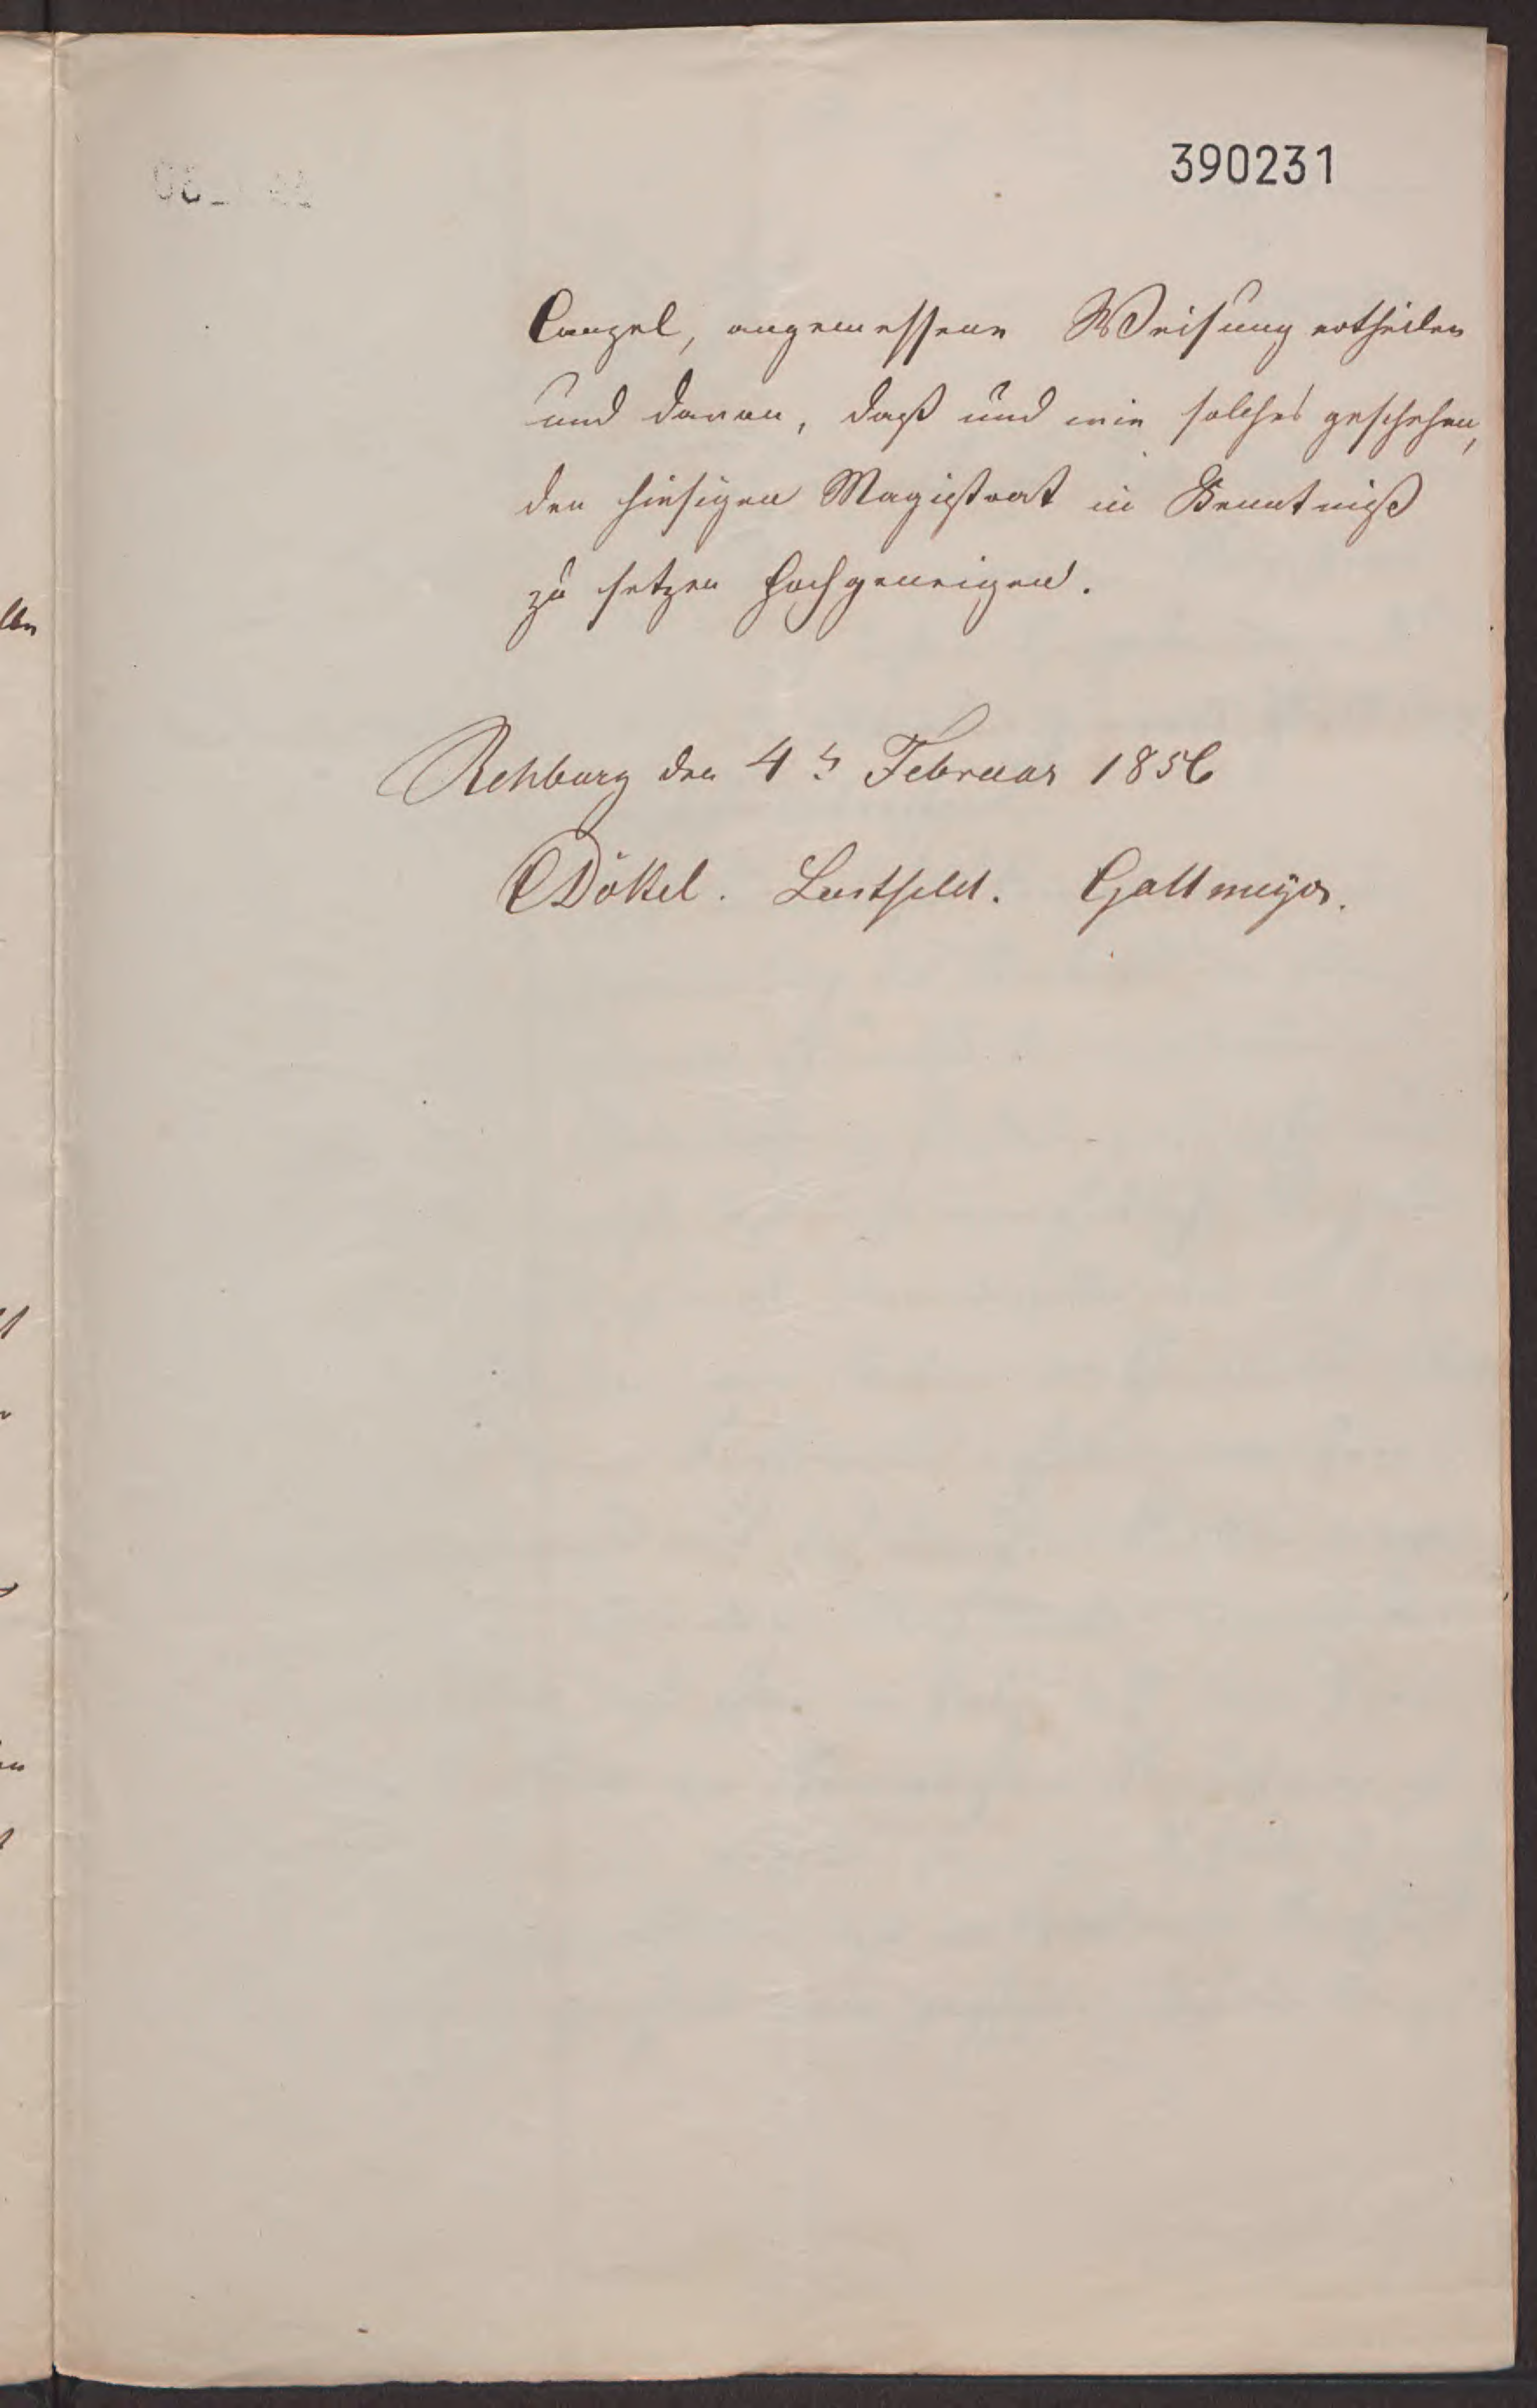 390231
Canzel, angemessene Weisung ertheilen
und davon, daß und wie solches geschehen,
den hiesigen Magistrat in Kenntniß
zu setzen hochgeneigen.
Rehburg den 4ts Februar 1856
Dökel. Lustfeld. Gallmeyer.